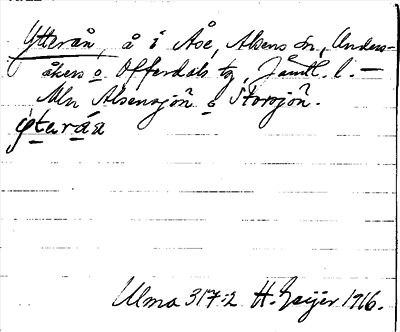 Ytterån, å i Åse, Alsens sn, Unders-
åkers o Offerdals tg, Jämtl. l. —
Mln Alsensjön o Storsjön.
ýterȧ́a
Ulma 317:2 H. Geijer 1916.